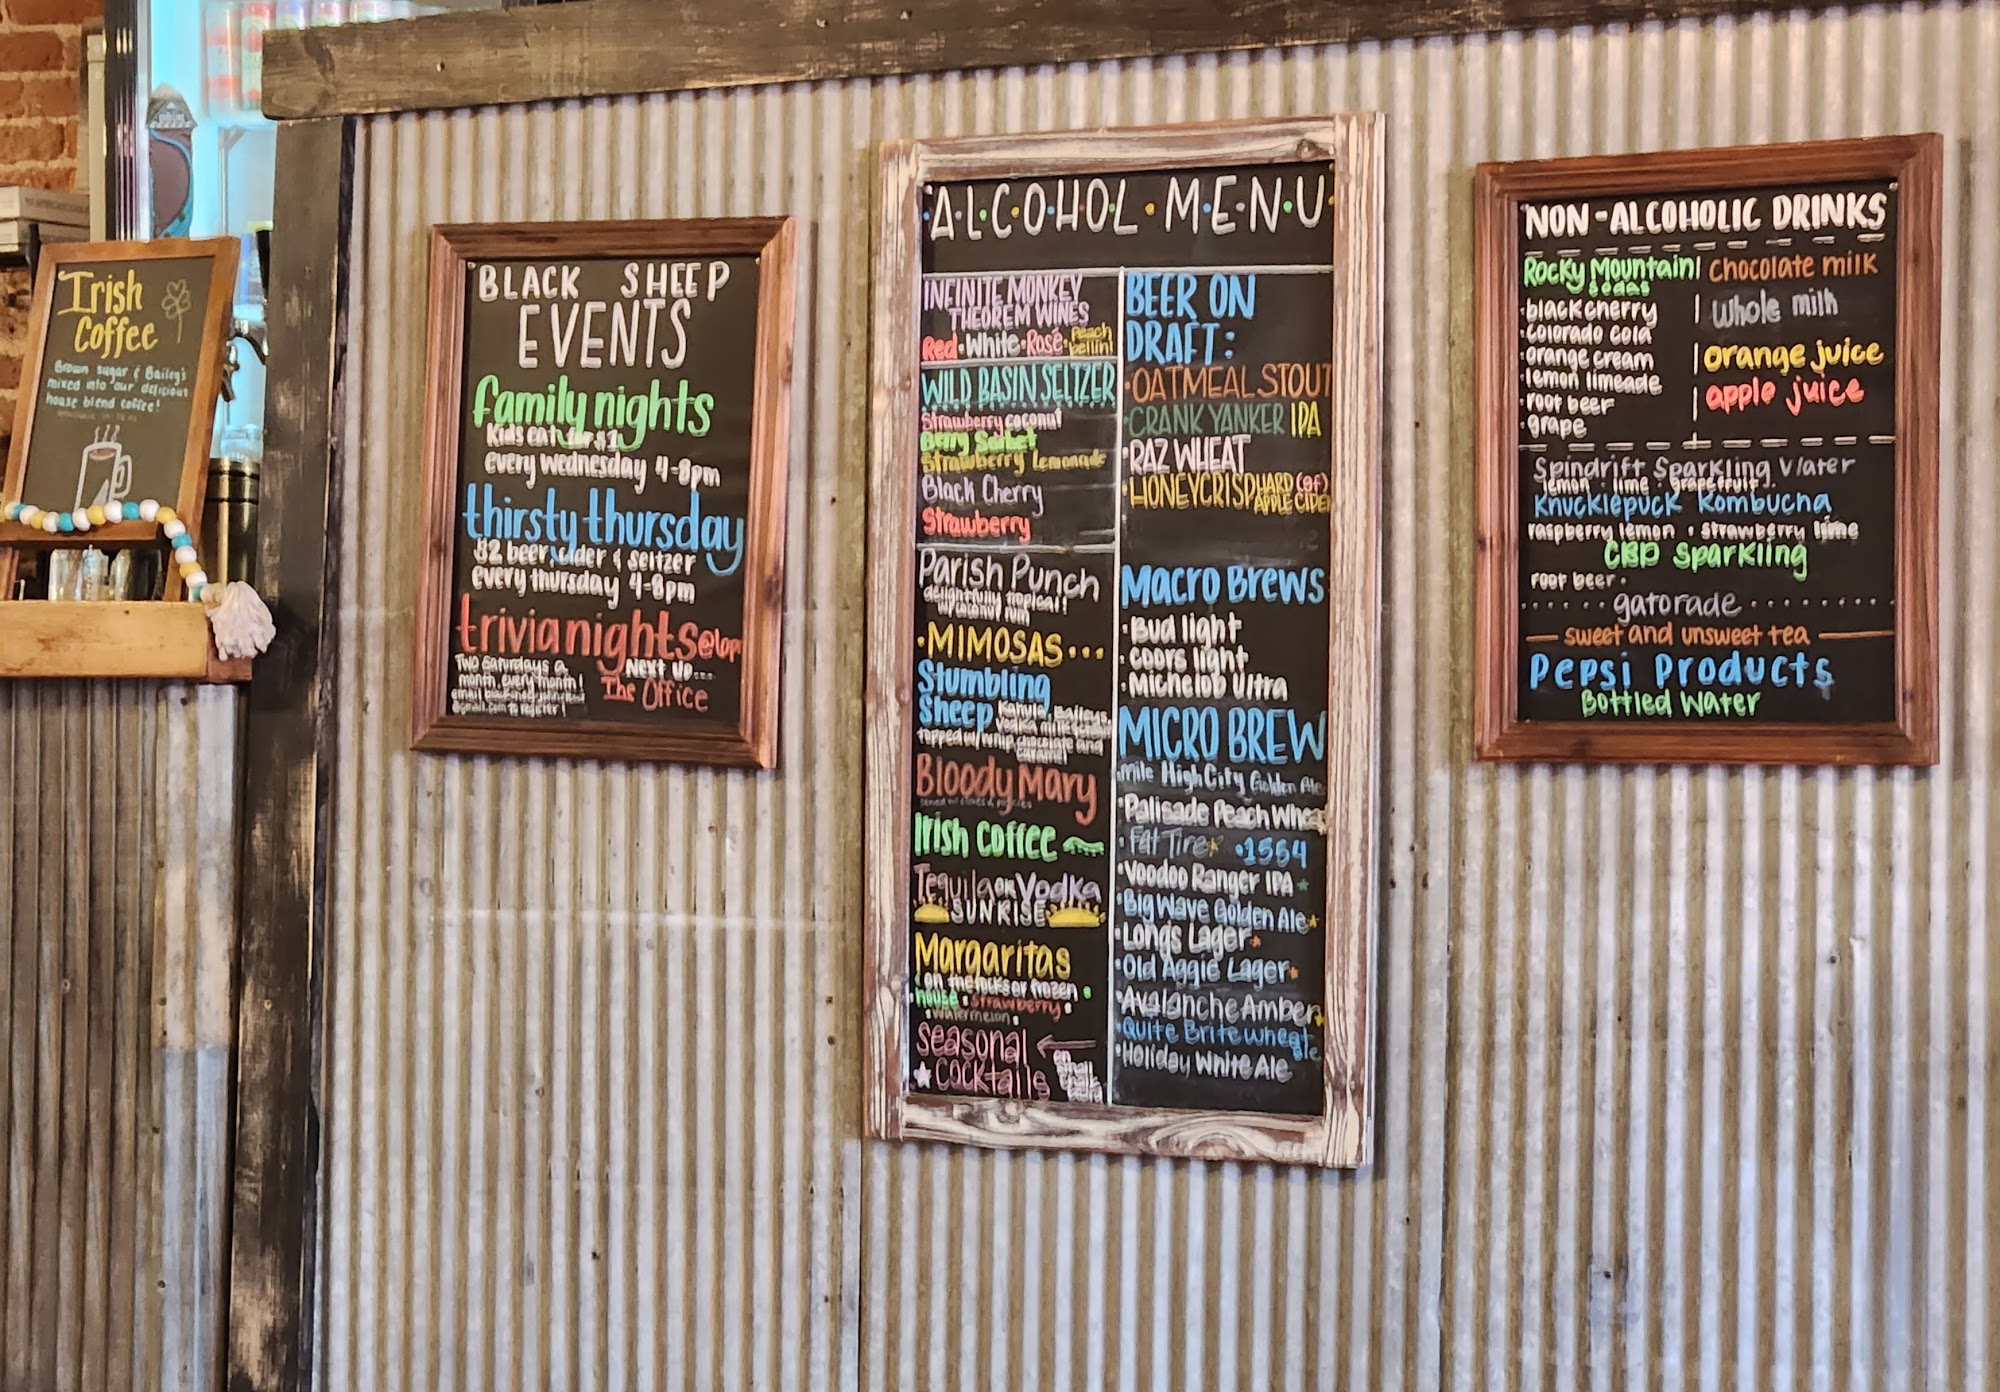 Irish
Coffee
Brown sugar & Bailey's
mixed into our delicious
house blend coffee!
BLACK SHEEP
EVENTS
family nights
kids eat for $1
every wednesday 4-8pm
thirsty thursday
$2 beer, cider & seltzer
every thursday 4-8pm
trivia nights
TWO Saturdays a
month, every month!
email
@gmail.com to register!
NEXT UP...
The Office
ALCOHOL MENU
INFINITE MONKEY
THEOREM WINES
Red • White • Rosé • peach
bellini
WILD BASIN SELTZER
Strawberry coconut
Berry Sorbet
Strawberry Lemonade
Black Cherry
Strawberry
Parish Punch
delightfully tropical!
w/coconut rum
• MIMOSAS...
Stumbling
Sheep Kahlua, Baileys,
vodka
topped w/ whip, chocolate and
caramel
Bloody Mary
Irish Coffee
Tequila OR Vodka
SUNRISE
Margaritas
on the rocks or frozen
• house • Strawberry •
• watermelon •
Seasonal
cocktails
on
small
chalk
BEER ON
DRAFT:
• OATMEAL STOUT
• CRANK YANKER IPA
• RAZ WHEAT
• HONEYCRISP HARD (GF)
APPLE CIDER
MACRO BREWS
• Bud light
• coors light
• Michelob Ultra
MICRO BREW
• mile High City Golden Ale
• Palisade Peach Wheat
• Fat Tire • 1554
• Voodoo Ranger IPA
• Big Wave Golden Ale
• Longs Lager
• Old Aggie Lager
• Avalanche Amber
• Quite Brite wheat
• Holiday White Ale
NON-ALCOHOLIC DRINKS
Rocky Mountain
sodas
• black cherry
• colorado cola
• orange cream
• lemon limeade
• root beer
• grape
chocolate milk
whole milk
orange juice
apple juice
Spindrift Sparkling Water
lemon • lime • grapefruit
Knucklepuck Kombucha
raspberry lemon • strawberry lime
CBD Sparkling
root beer •
gatorade
sweet and unsweet tea
Pepsi Products
Bottled Water